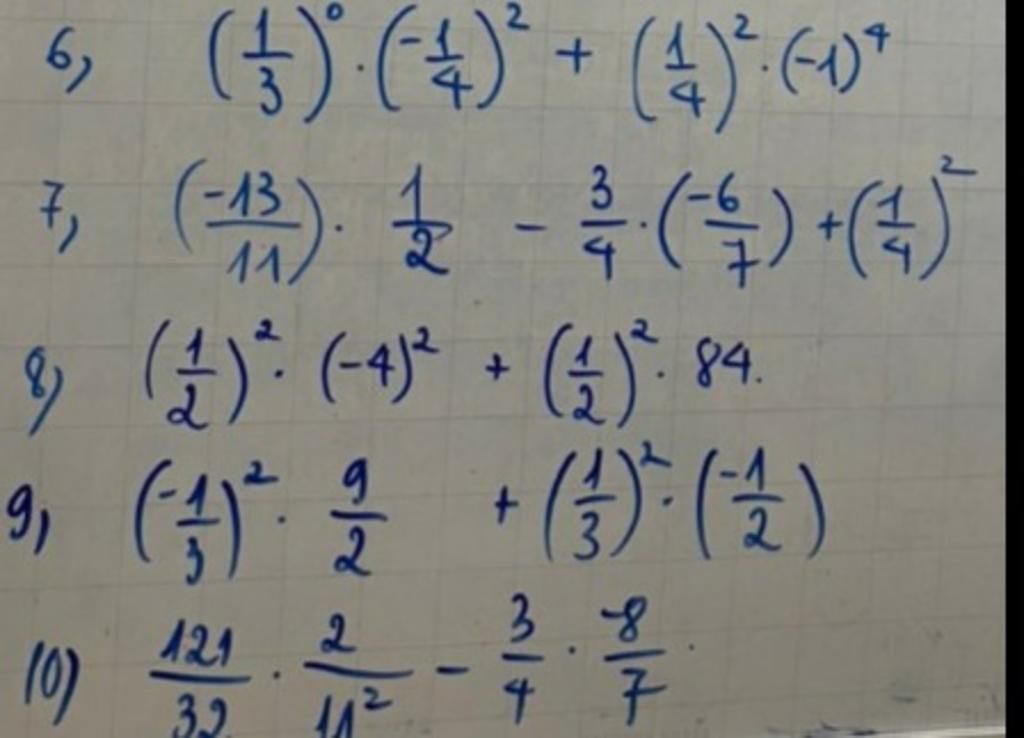 6, (1/3)⁰ · (-1/4)² + (1/4)² · (-1)⁴
7, (-13/11) · 1/2 - 3/4 · (-6/7) + (1/4)²
8) (1/2)² · (-4)² + (1/2)² · 84.
9, (-1/3)² · 9/2 + (1/3)² · (-1/2)
10) 121/32 · 2/11² - 3/4 · -8/7 ·